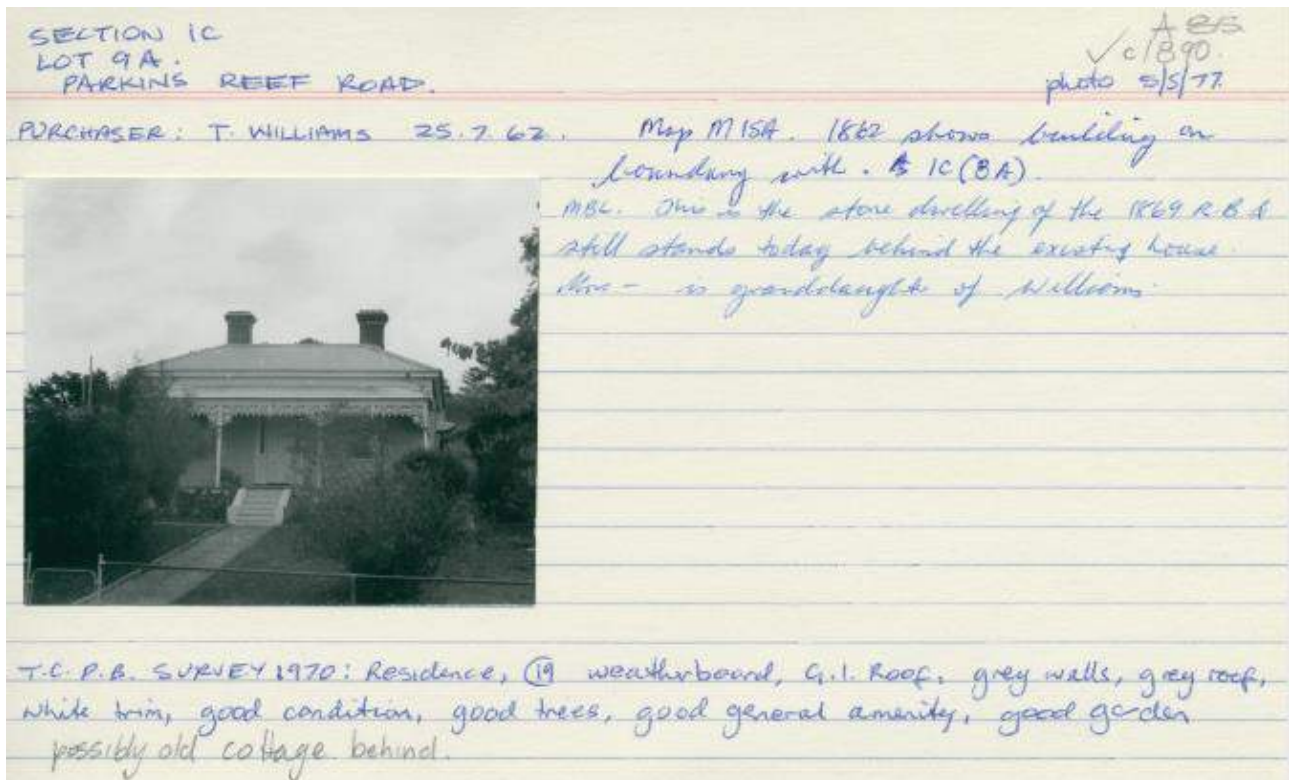 SECTION 1C
LOT 9A.
PARKINS REEF ROAD.
A
✓ c/B90.
photo 5/5/77.
PURCHASER: T. WILLIAMS 25.7.62. Map M15A. 1862 shows building on
boundary with. 1C(8A).
MBL. This is the stone dwelling of the 1869 R.B &
still stands today behind the existing house.
Mrs - is granddaught of Williams
T.C.P.B. SURVEY 1970: Residence, 19 weatherboard, G.I. Roof, grey walls, grey roof,
white trim, good condition, good trees, good general amenity, good garden
possibly old cottage behind.